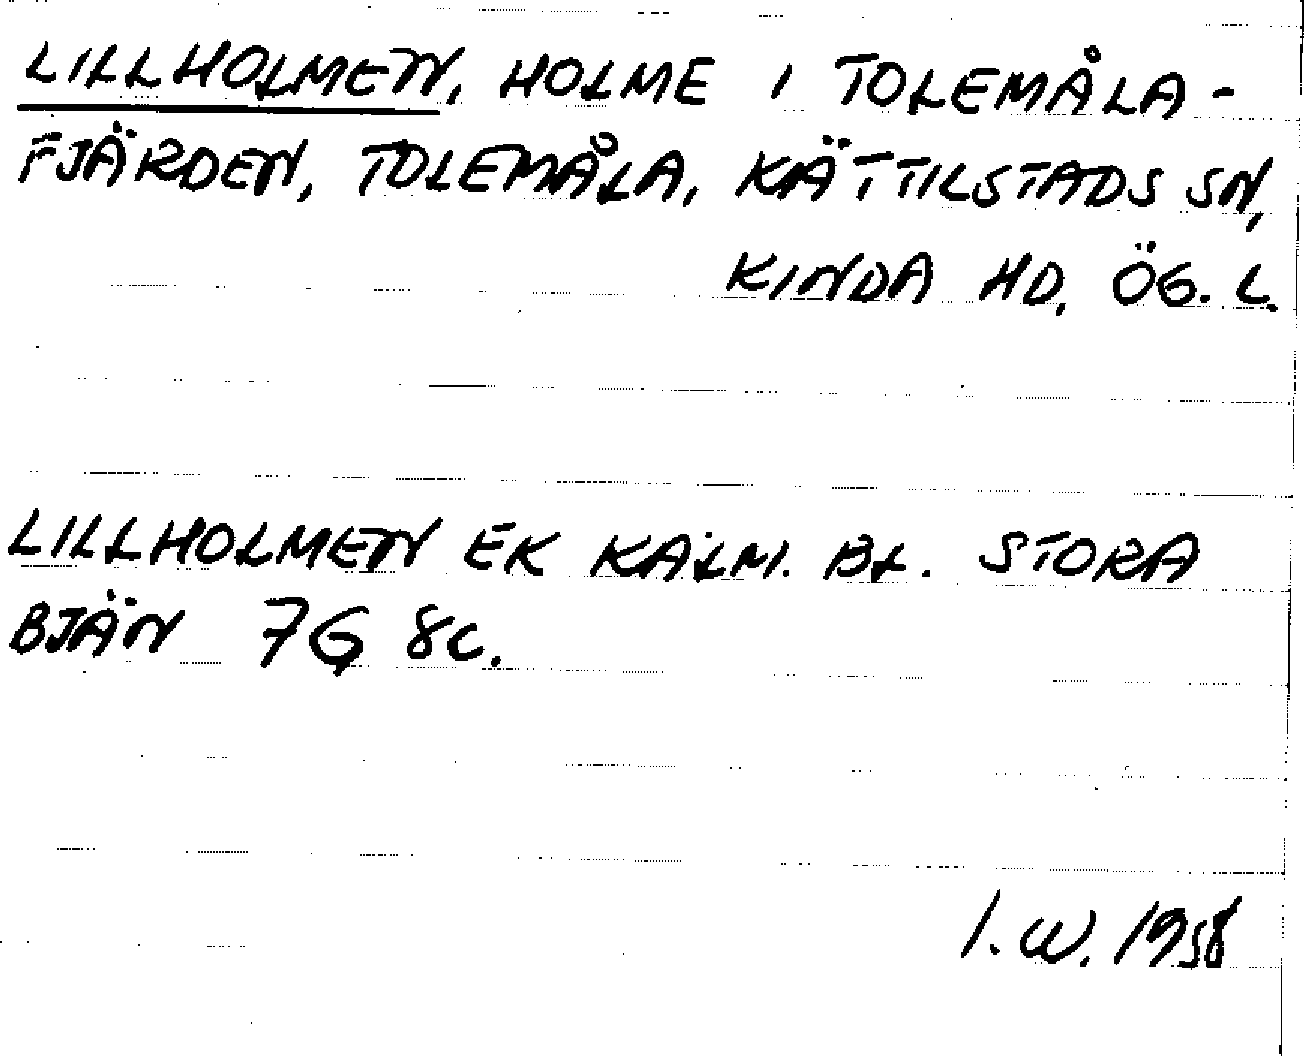 LILLHOLMEN, HOLME I TOLEMÅLA-
FJÄRDEN, TOLEMÅLA, KÄTTILSTADS SN,
KINDA HD, ÖG. L.
LILLHOLMEN EK KALM. BL. STORA
BJÄN 7G 8C.
I. W. 1958